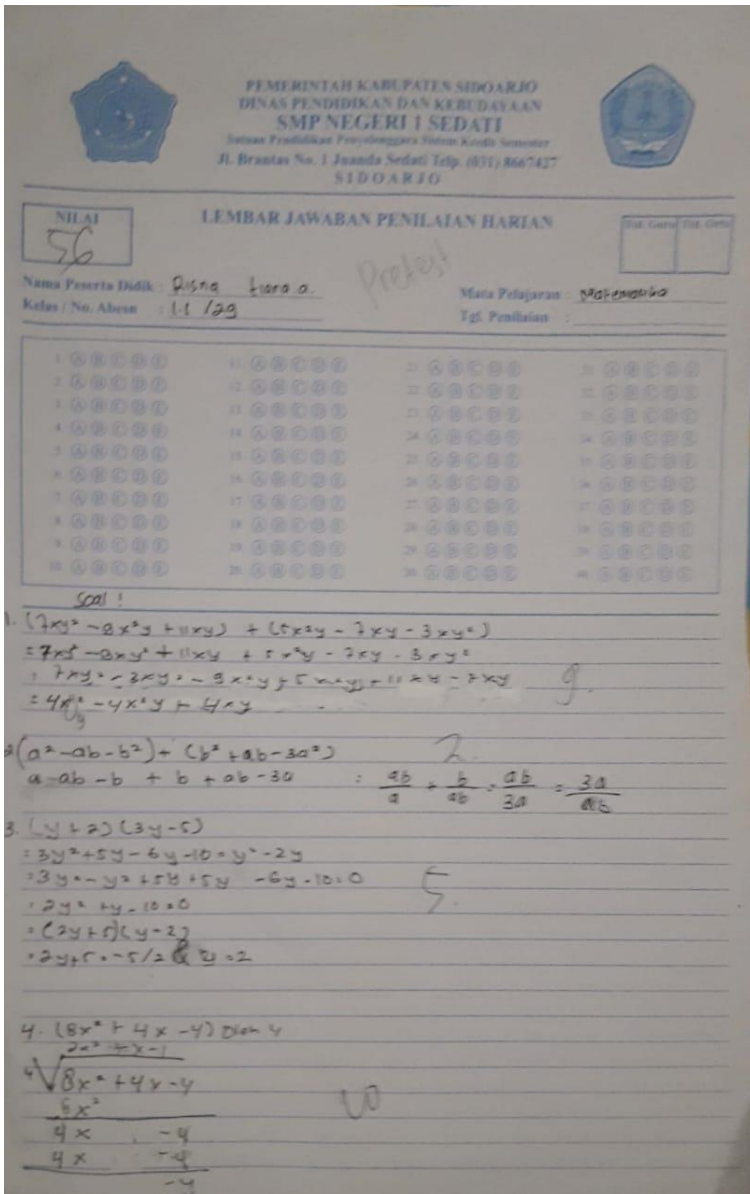 PEMERINTAH KABUPATEN SIDOARJO
DINAS PENDIDIKAN DAN KEBUDAYAAN
SMP NEGERI 1 SEDATI
Satuan Pendidikan Penyelenggara Sistem Kredit Semester
Jl. Brantas No. 1 Juanda Sedati Telp. (031) 8667427
SIDOARJO
NILAI
56
LEMBAR JAWABAN PENILAIAN HARIAN
Ttd. Guru Ttd. Ortu
Pretest
Nama Peserta Didik : Risna tiara a.
Mata Pelajaran : Matematika
Kelas / No. Absen : /29
Tgl. Penilaian :
1 A B C D E 11 A B C D E 21 A B C D E 31 A B C D E
2 A B C D E 12 A B C D E 22 A B C D E 32 A B C D E
3 A B C D E 13 A B C D E 23 A B C D E 33 A B C D E
4 A B C D E 14 A B C D E 24 A B C D E 34 A B C D E
5 A B C D E 15 A B C D E 25 A B C D E 35 A B C D E
6 A B C D E 16 A B C D E 26 A B C D E 36 A B C D E
7 A B C D E 17 A B C D E 27 A B C D E 37 A B C D E
8 A B C D E 18 A B C D E 28 A B C D E 38 A B C D E
9 A B C D E 19 A B C D E 29 A B C D E 39 A B C D E
10 A B C D E 20 A B C D E 30 A B C D E 40 A B C D E
Soal !
1. (7xy² - 8x²y + 11xy) + (5x²y - 7xy - 3xy²)
= 7xy² - 8xy² + 11xy + 5x²y - 7xy - 3xy²
= 7xy² - 3xy² - 9x²y + 5x²y + 11xy - 7xy 9.
= 4xy² - 4x²y + 4xy
2 (a² - ab - b²) + (b² + ab - 3a²) 2.
a - ab - b + b + ab - 3a = ab/a + b/ab = ab/3a = 3a/ab
3. (y + 2) (3y - 5)
= 3y² + 5y - 6y - 10 = y² - 2y
= 3y² - y² + 5y + 5y - 6y - 10 = 0 5.
= 2y² + y - 10 = 0
= (2y + 5)(y - 2)
= 2y + 5 = -5/2 & y = 2
4. (8x² + 4x - 4) oleh 4
2x² + x - 1
4√8x² + 4x - 4
8x² 10
4x - 4
4x - 4
-4